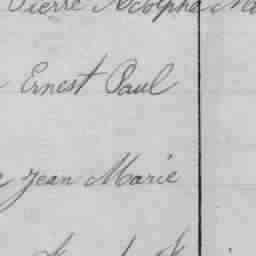 Pierre Adolphe
Ernest Paul
Jean Marie